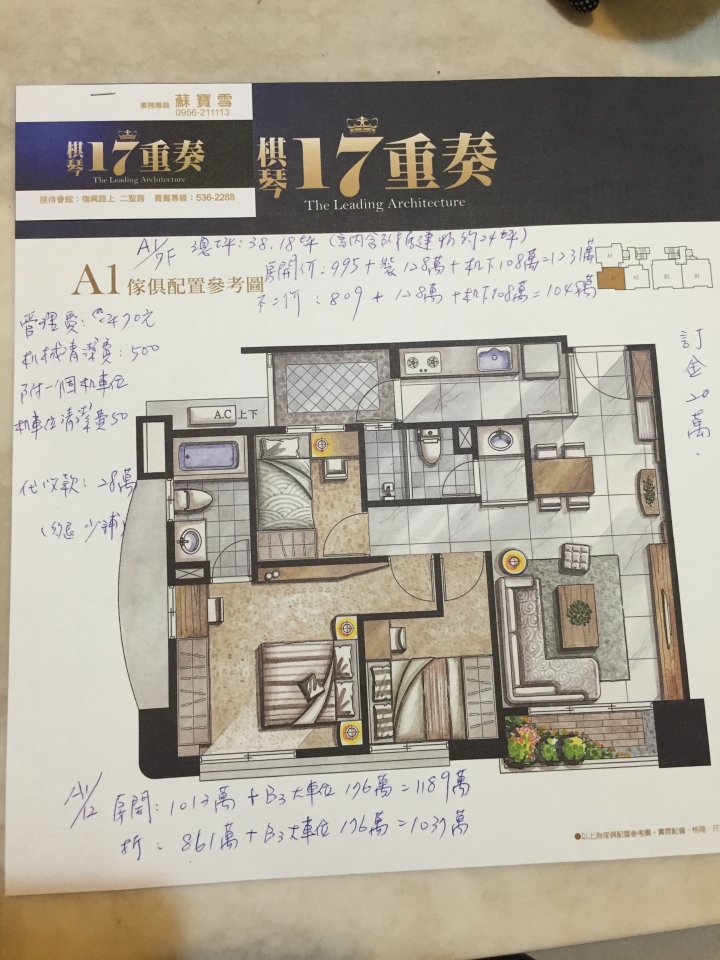 業務專員 蘇寶雪
0956-211113
棋琴17重奏
The Leading Architecture
接待會館：復興路上 二聖路 貴賓專線：536-2288
棋琴17重奏
The Leading Architecture
A1/7F 總坪：38.18坪（室內含附屬建物約24坪）
A1 傢俱配置參考圖
房開價：995+裝128萬+机下108萬=1231萬
不二价：809+128萬+机下108萬=1045萬
管理費：2470元
机械清潔費：500
附一個机車位
机車位清潔費50
代收款：28萬
訂金20萬.
A.C 上下
A1/12 房開：1013萬+B3大車位176萬=1189萬
折：861萬+B3大車位176萬=1037萬
●以上為傢俱配置參考圖，實際配備、格局、尺